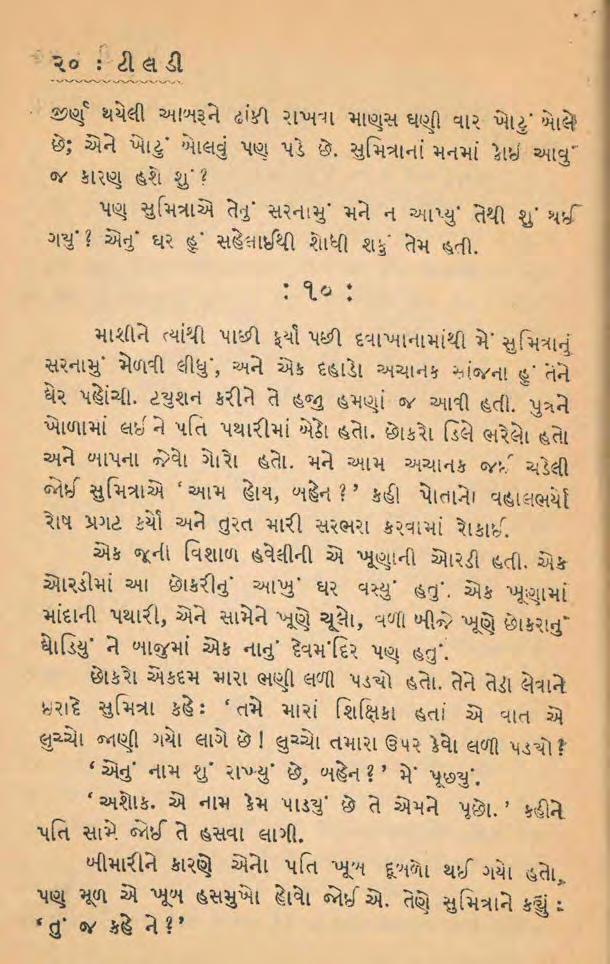 ૨૦ : ટીલડી
જીર્ણ થયેલી આબરૂને ઢાંકી રાખવા માણસ ઘણી વાર ખોટું બોલે
છે; એને ખોટું બોલવું પણ પડે છે. સુમિત્રાનાં મનમાં કોઈ આવું
જ કારણ હશે શું ?
પણ સુમિત્રાએ તેનું સરનામું મને ન આપ્યું તેથી શું થઈ
ગયું ? એનું ઘર હું સહેલાઈથી શોધી શકું તેમ હતી.
: ૧૦ :
માશીને ત્યાંથી પાછી ફર્યા પછી દવાખાનામાંથી મેં સુમિત્રાનું
સરનામું મેળવી લીધું, અને એક દહાડો અચાનક સાંજના હું તેને
ઘેર પહોંચી. ટ્યુશન કરીને તે હજુ હમણાં જ આવી હતી. પુત્રને
ખોળામાં લઈ ને પતિ પથારીમાં બેઠો હતો. છોકરો ડિલે ભરેલો હતો
અને બાપના જેવો ગોરો હતો. મને આમ અચાનક જઈ ચડેલી
જોઈ સુમિત્રાએ ‘ આમ હોય, બહેન ? ’ કહી પોતાનો વહાલભર્યો
રોષ પ્રગટ કર્યો અને તુરત મારી સરભરા કરવામાં રોકાઈ.
એક જૂની વિશાળ હવેલીની એ ખૂણાની ઓરડી હતી. એક
ઓરડીમાં આ છોકરીનું આખું ઘર વસ્યું હતું. એક ખૂણામાં
માંદાની પથારી, એને સામેને ખૂણે ચૂલો, વળી બીજે ખૂણે છોકરાનું
ઘોડિયું ને બાજુમાં એક નાનું દેવમંદિર પણ હતું.
છોકરો એકદમ મારા ભણી લળી પડ્યો હતો. તેને તેડી લેવાને
ઇરાદે સુમિત્રા કહે : ‘ તમે મારાં શિક્ષિકા હતાં એ વાત એ
લુચ્ચો જાણી ગયો લાગે છે ! લુચ્ચો તમારા ઉપર કેવો લળી પડ્યો ?
‘ એનું નામ શું રાખ્યું છે, બહેન ? ’ મેં પૂછ્યું.
‘ અશોક. એ નામ કેમ પાડ્યું છે તે એમને પૂછો. ’ કહીને
પતિ સામે જોઈ તે હસવા લાગી.
બીમારીને કારણે એનો પતિ ખૂબ દૂબળો થઈ ગયો હતો,
પણ મૂળ એ ખૂબ હસમુખો હોવો જોઈ એ. તેણે સુમિત્રાને કહ્યું :
‘ તું જ કહે ને ? ’